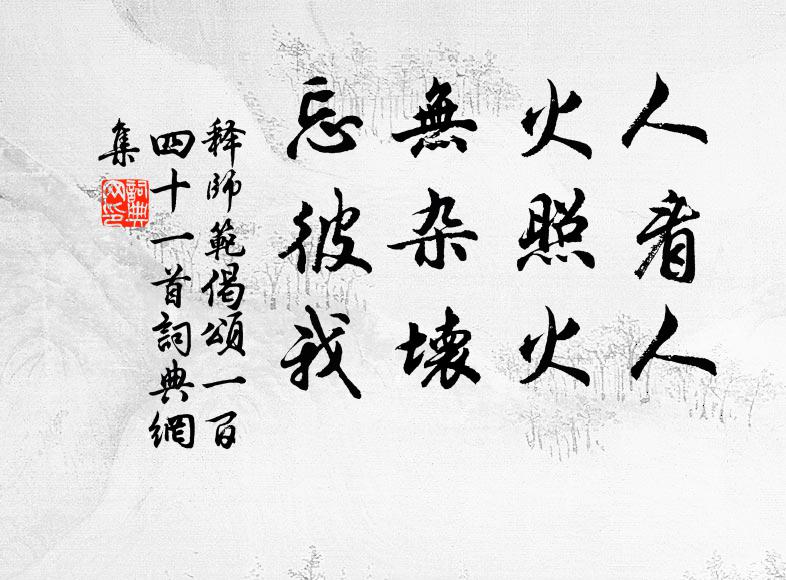 人看人
火照火
無杂壞
忘彼我
释師範偈頌一百
四十一首詞典網
集
詞典
网印